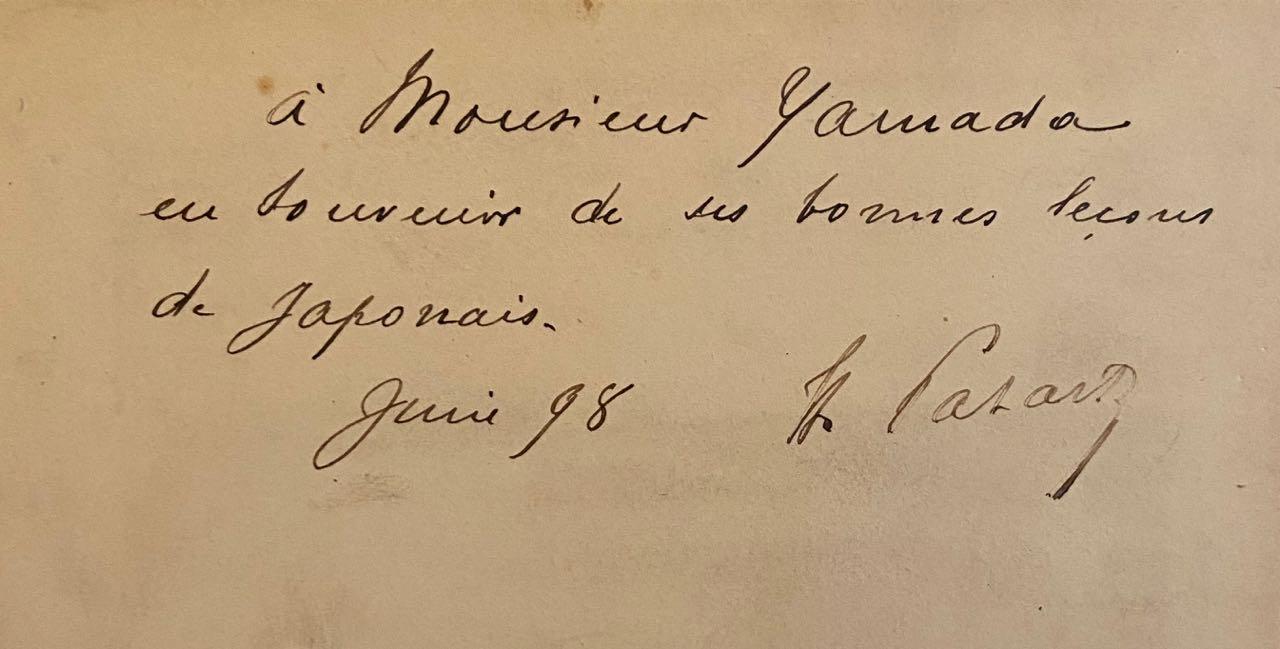 à Monsieur Yamada
en souvenir de ses bonnes leçons
de Japonais.
Juin 98